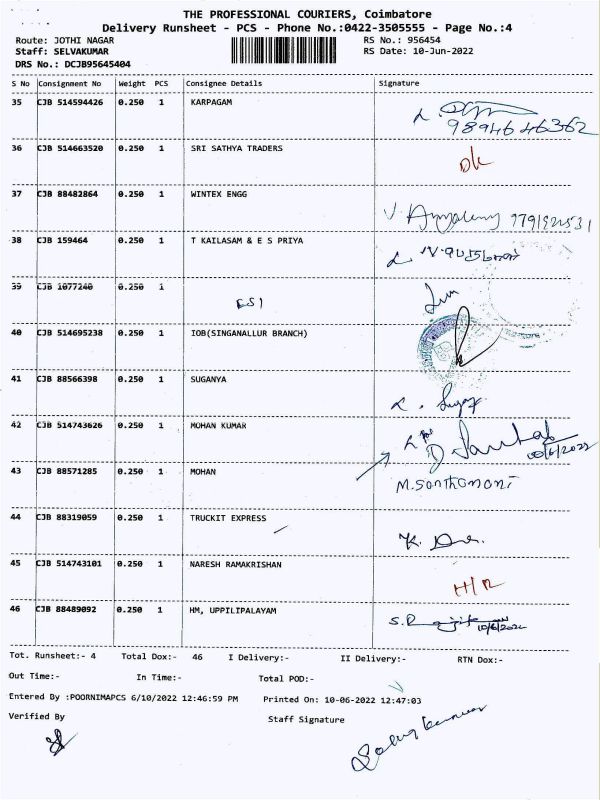 THE PROFESSIONAL COURIERS, Coimbatore
Delivery Runsheet - PCS - Phone No.:0422-3505555 - Page No.:4
Route: JOTHI NAGAR RS No.: 956454
Staff: SELVAKUMAR RS Date: 10-Jun-2022
DRS No.: DCJB95645404
S No Consignment No Weight PCS Consignee Details Signature
35 CJB 514594426 0.250 1 KARPAGAM
9894646362
36 CJB 514663520 0.250 1 SRI SATHYA TRADERS
37 CJB 88482864 0.250 1 WINTEX ENGG
38 CJB 159464 0.250 1 T KAILASAM & E S PRIYA
39 CJB 1077240 0.250 1
ESI
40 CJB 514695238 0.250 1 IOB(SINGANALLUR BRANCH)
41 CJB 88566398 0.250 1 SUGANYA
42 CJB 514743626 0.250 1 MOHAN KUMAR
43 CJB 88571285 0.250 1 MOHAN
M.Santhamani
44 CJB 88319059 0.250 1 TRUCKIT EXPRESS
45 CJB 514743101 0.250 1 NARESH RAMAKRISHAN
H/R
46 CJB 88489092 0.250 1 HM, UPPILIPALAYAM
10/6/2022
Tot. Runsheet:- 4 Total Dox:- 46 I Delivery:- II Delivery:- RTN Dox:-
Out Time:- In Time:- Total POD:-
Entered By :POORNIMAPCS 6/10/2022 12:46:59 PM Printed On: 10-06-2022 12:47:03
Verified By Staff Signature